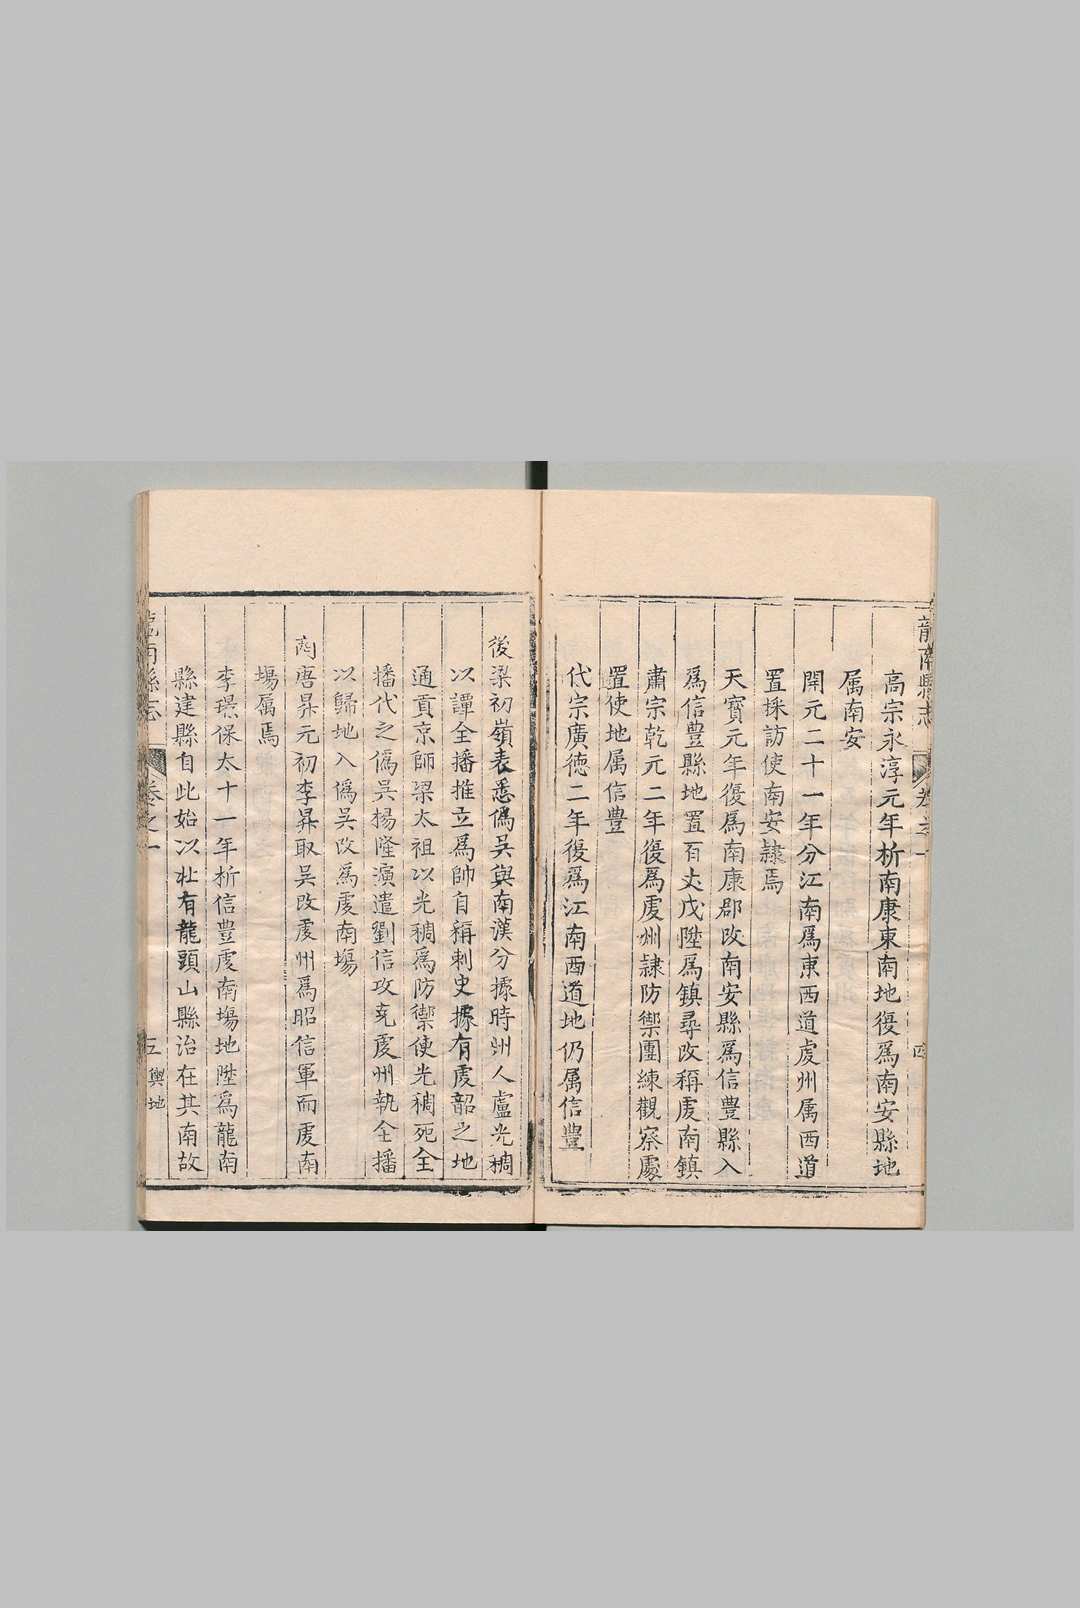 龍南縣志
卷之一
四
高宗永淳元年析南康東南地復爲南安縣地
属南安
開元二十一年分江南爲東西道虔州属西道
置採訪使南安隷焉
天寳元年復爲南康郡改南安縣爲信豊縣入
爲信豊縣地置百丈戍陞爲鎮尋改稱虔南鎮
肅宗乾元二年復爲虔州隷防禦團練觀察處
置使地属信豊
代宗廣德二年復爲江南西道地仍属信豊
後梁初嶺表悉僞吳與南漢分據時州人盧光稠
以譚全播推立爲帥自稱刺史據有虔韶之地
通貢京師梁太祖以光稠爲防禦使光稠死全
播代之僞吳楊隆演遣劉信攻克虔州執全播
以歸地入僞吳改爲虔南塲
南唐昇元初李昪取吳改虔州爲昭信軍而虔南
塲属焉
李璟保大十一年析信豊虔南塲地陞爲龍南
縣建縣自此始以北有龍頭山縣治在其南故
龍南縣志
卷之一
五
輿地